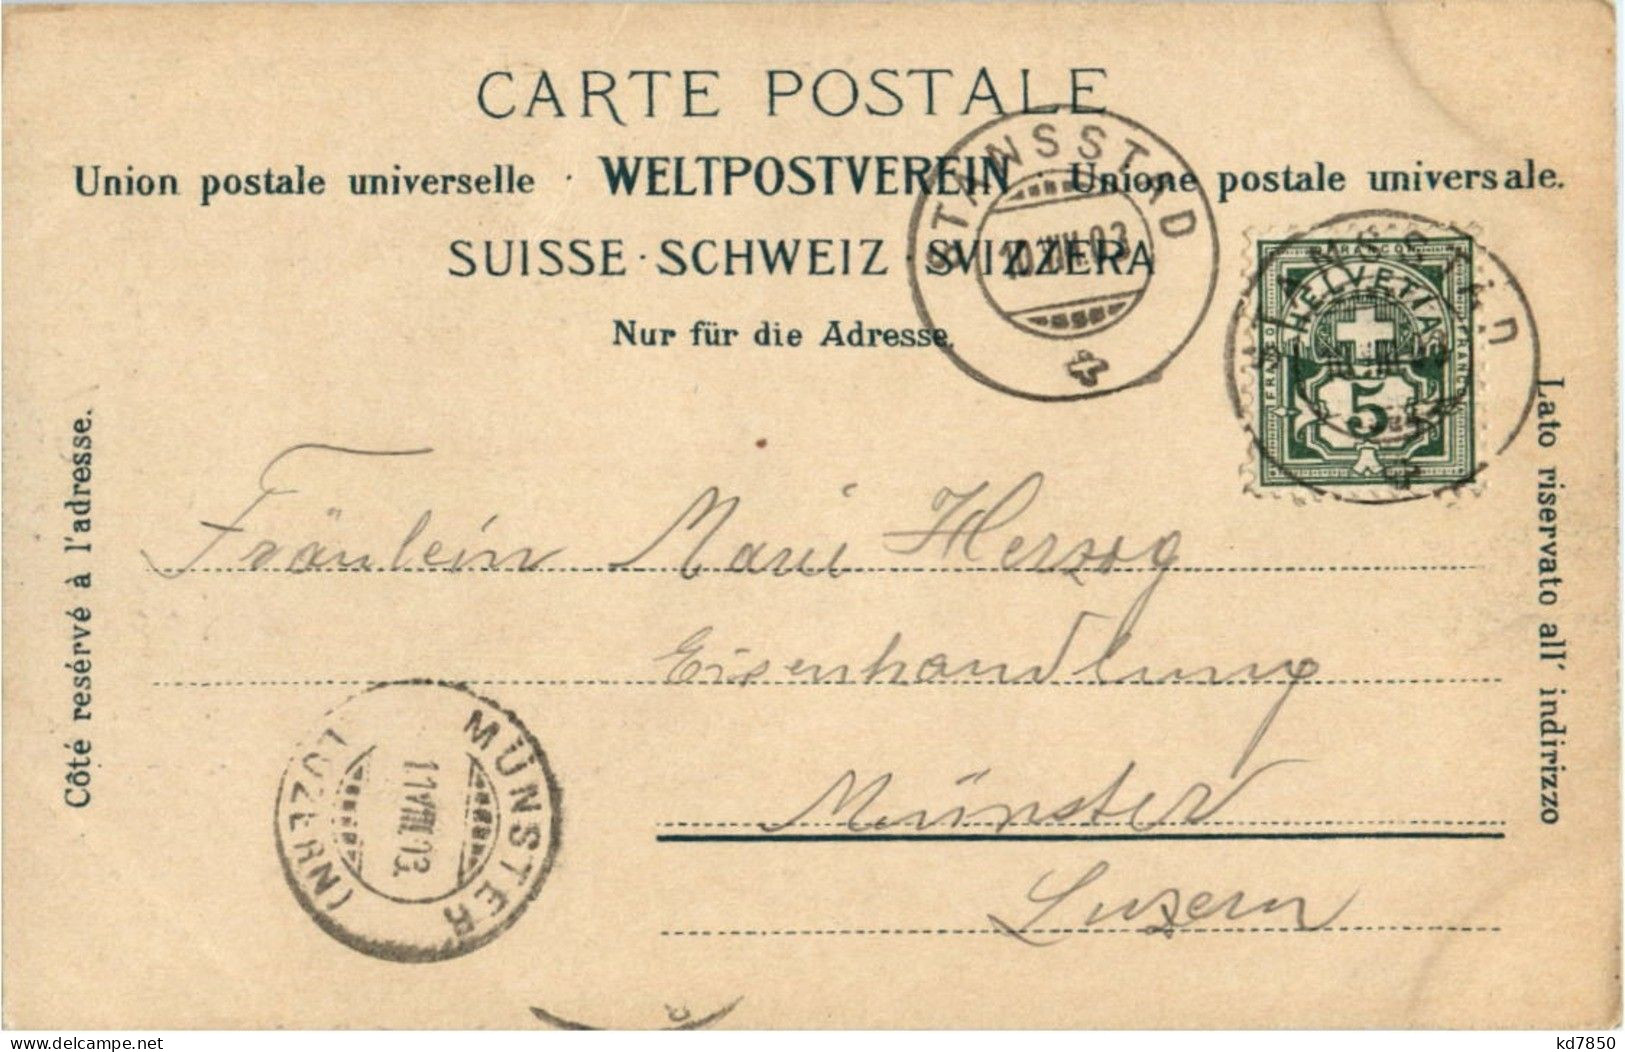 CARTE POSTALE
Union postale universelle · WELTPOSTVEREIN · Unione postale universale.
SUISSE · SCHWEIZ · SVIZZERA
Nur für die Adresse.
STANSSTAD
10.VIII.03
STANSSTAD
FRANCO MARANCON FRANCO
HELVETIA
5
Côté resérvé à l'adresse.
Lato riservato all' indirizzo
Fräulein Marie Herzog
Eisenhandlung
Münster
Luzern
MÜNSTER
(LUZERN)
11.VIII.03
delcampe.net
kd7850